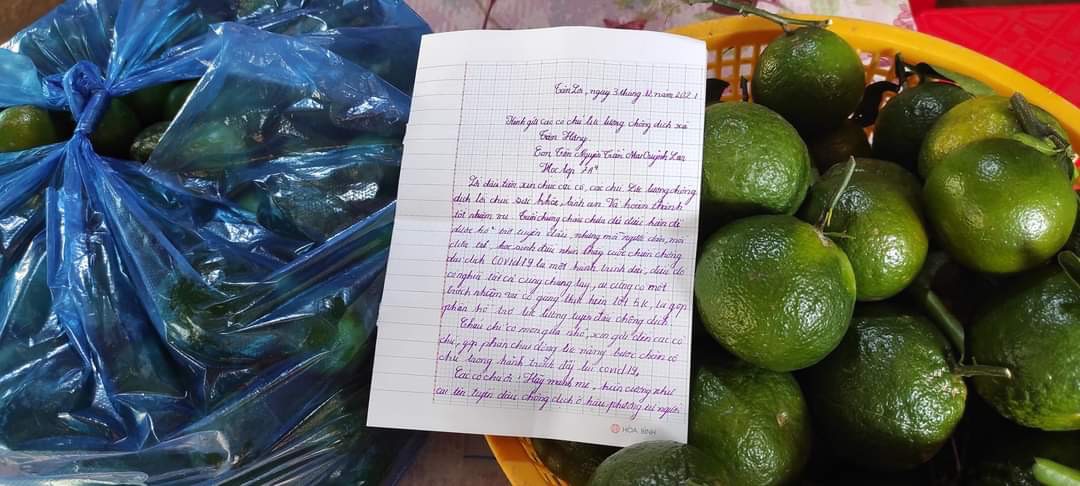 Tân Lợi, ngày 3 tháng 12 năm 2021
Kính gửi các cô chú lực lượng chống dịch xã
Tân Hưng
Em Tên Nguyễn Trần Mai Quỳnh Lan
Học lớp
Lời đầu tiên xin chúc các cô, các chú lực lượng chống
dịch lời chúc sức khỏe, bình an Và hoàn thành
tốt nhiệm vụ. Tuy chúng cháu chưa đủ điều kiện để
được hỗ trợ tuyến đầu, nhưng mỗi người dân, mỗi
đứa trẻ, học sinh đều nhận thấy cuộc chiến chống
đại dịch COVID 19 là một hành trình dài, điều đó
có nghĩa tất cả cùng chung tay, ai cũng có một
trách nhiệm và cố gắng thực hiện tốt 5k, là góp
phần hỗ trợ lực lượng tuyến đầu chống dịch
Cháu chỉ có món quà nhỏ, xin gửi đến các cô
chú, góp phần cháu động lực nâng bước chân cô
chú trong hành trình đẩy lùi covid 19,
Các cô chú ơi! Hãy mạnh mẽ, kiên cường như
cái tên tuyến đầu chống dịch ở hậu phương mọi người
HÒA BÌNH